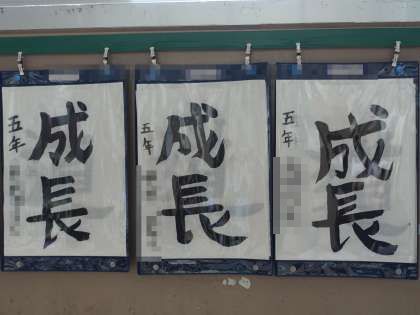 五年
成長
五年
成長
五年
成長